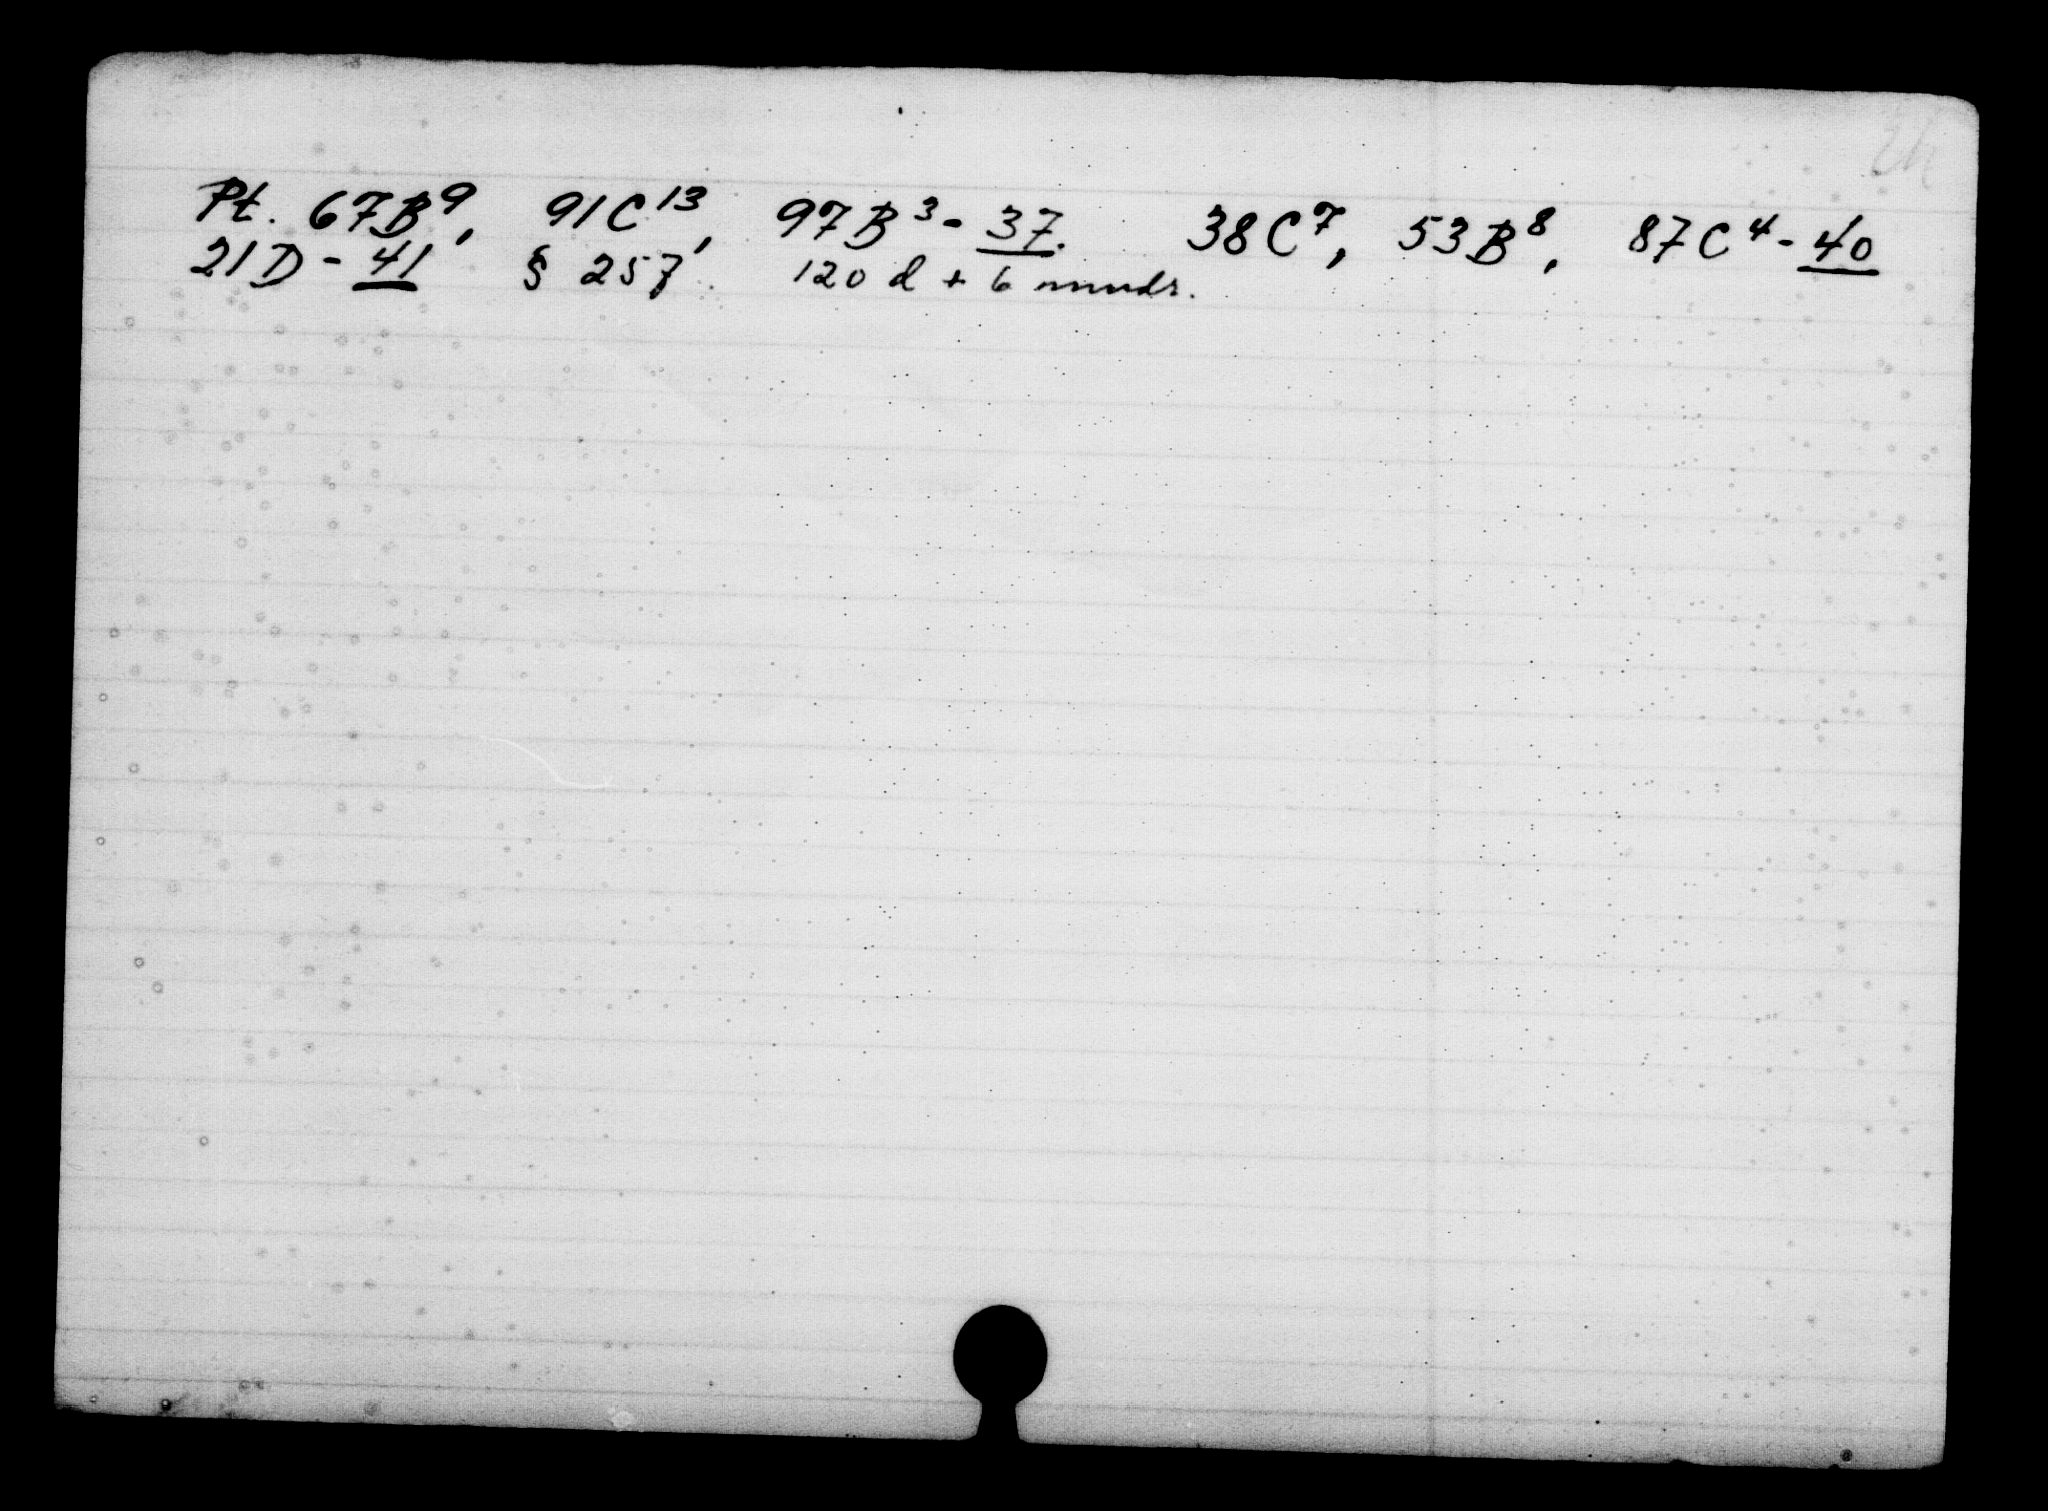 Pt. 67B⁹, 91C¹³, 97B³ - 37. 38C⁷, 53B⁸, 87C⁴ - 40
21D - 41 § 257. 120 d + 6 mndr.